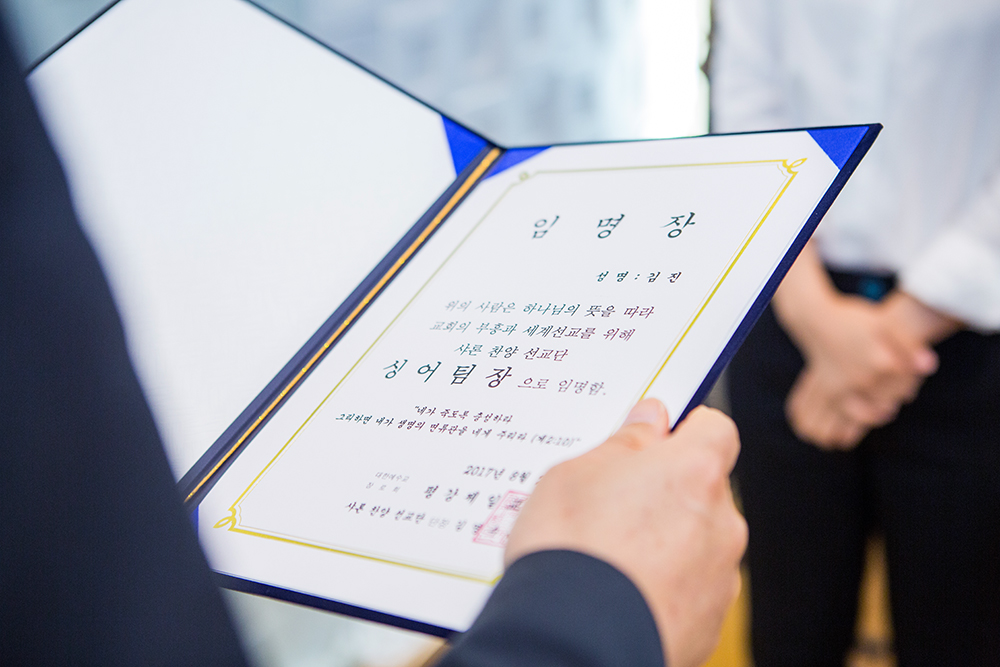 임 명 장
성 명 : 김 진
위의 사람은 하나님의 뜻을 따라
교회의 부흥과 세계선교를 위해
샤론 찬양 선교단
싱어팀장 으로 임명함.
"네가 죽도록 충성하라
그리하면 내가 생명의 면류관을 네게 주리라 (계2:10)"
2017년 8월
대한예수교
장로회
평강제일
샤론 찬양 선교단 단장